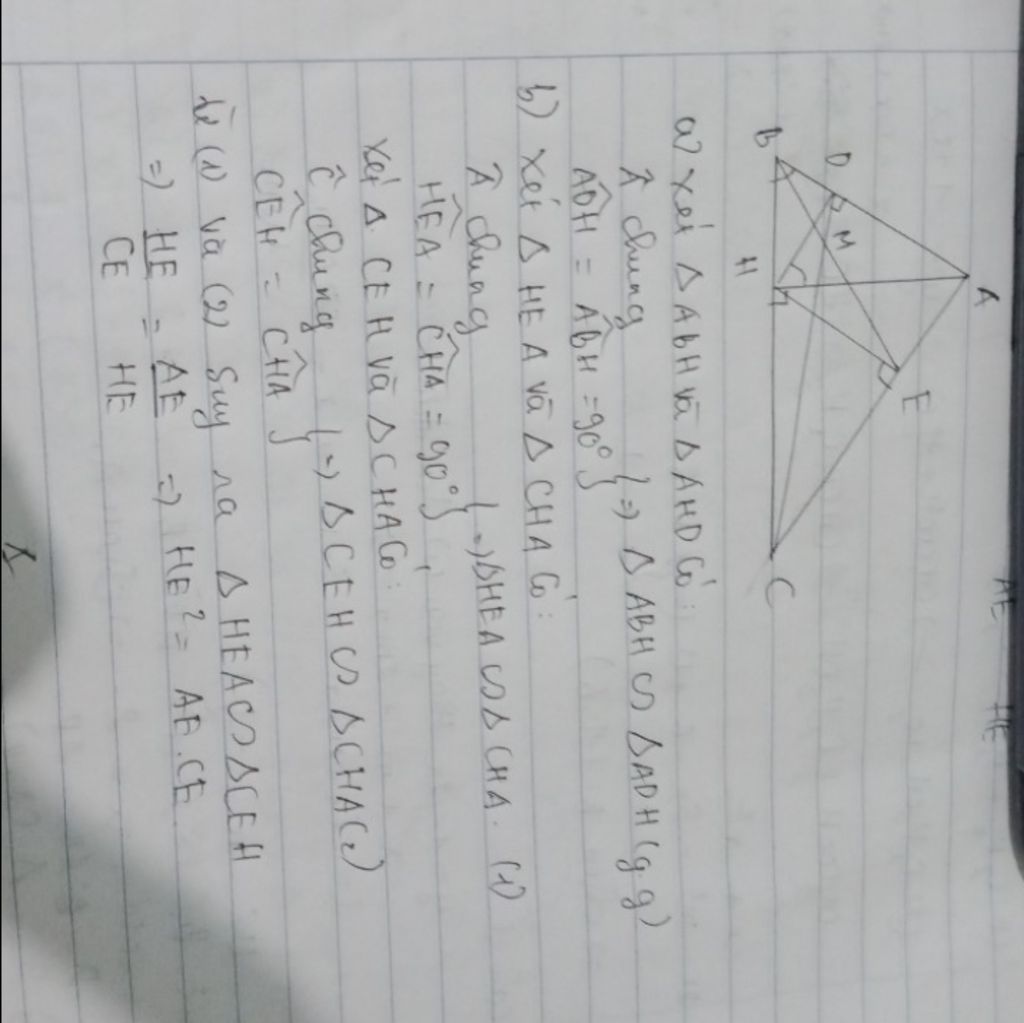 AE HE
A
D
M
E
B
H
C
a) Xét Δ ABH và Δ AHD có:
Â chung
ADH = ABH = 90° } => Δ ABH ∽ Δ ADH (g.g)
b) Xét Δ HEA và Δ CHA có:
Â chung
HEA = CHA = 90° } => Δ HEA ∽ Δ CHA. (1)
Xét Δ CEH và Δ CHA có:
Ĉ chung
CEH = CHA } => Δ CEH ∽ Δ CHA (2)
từ (1) và (2) suy ra Δ HEA ∽ Δ CEH
=> HE/CE = AE/HE => HE² = AE.CE